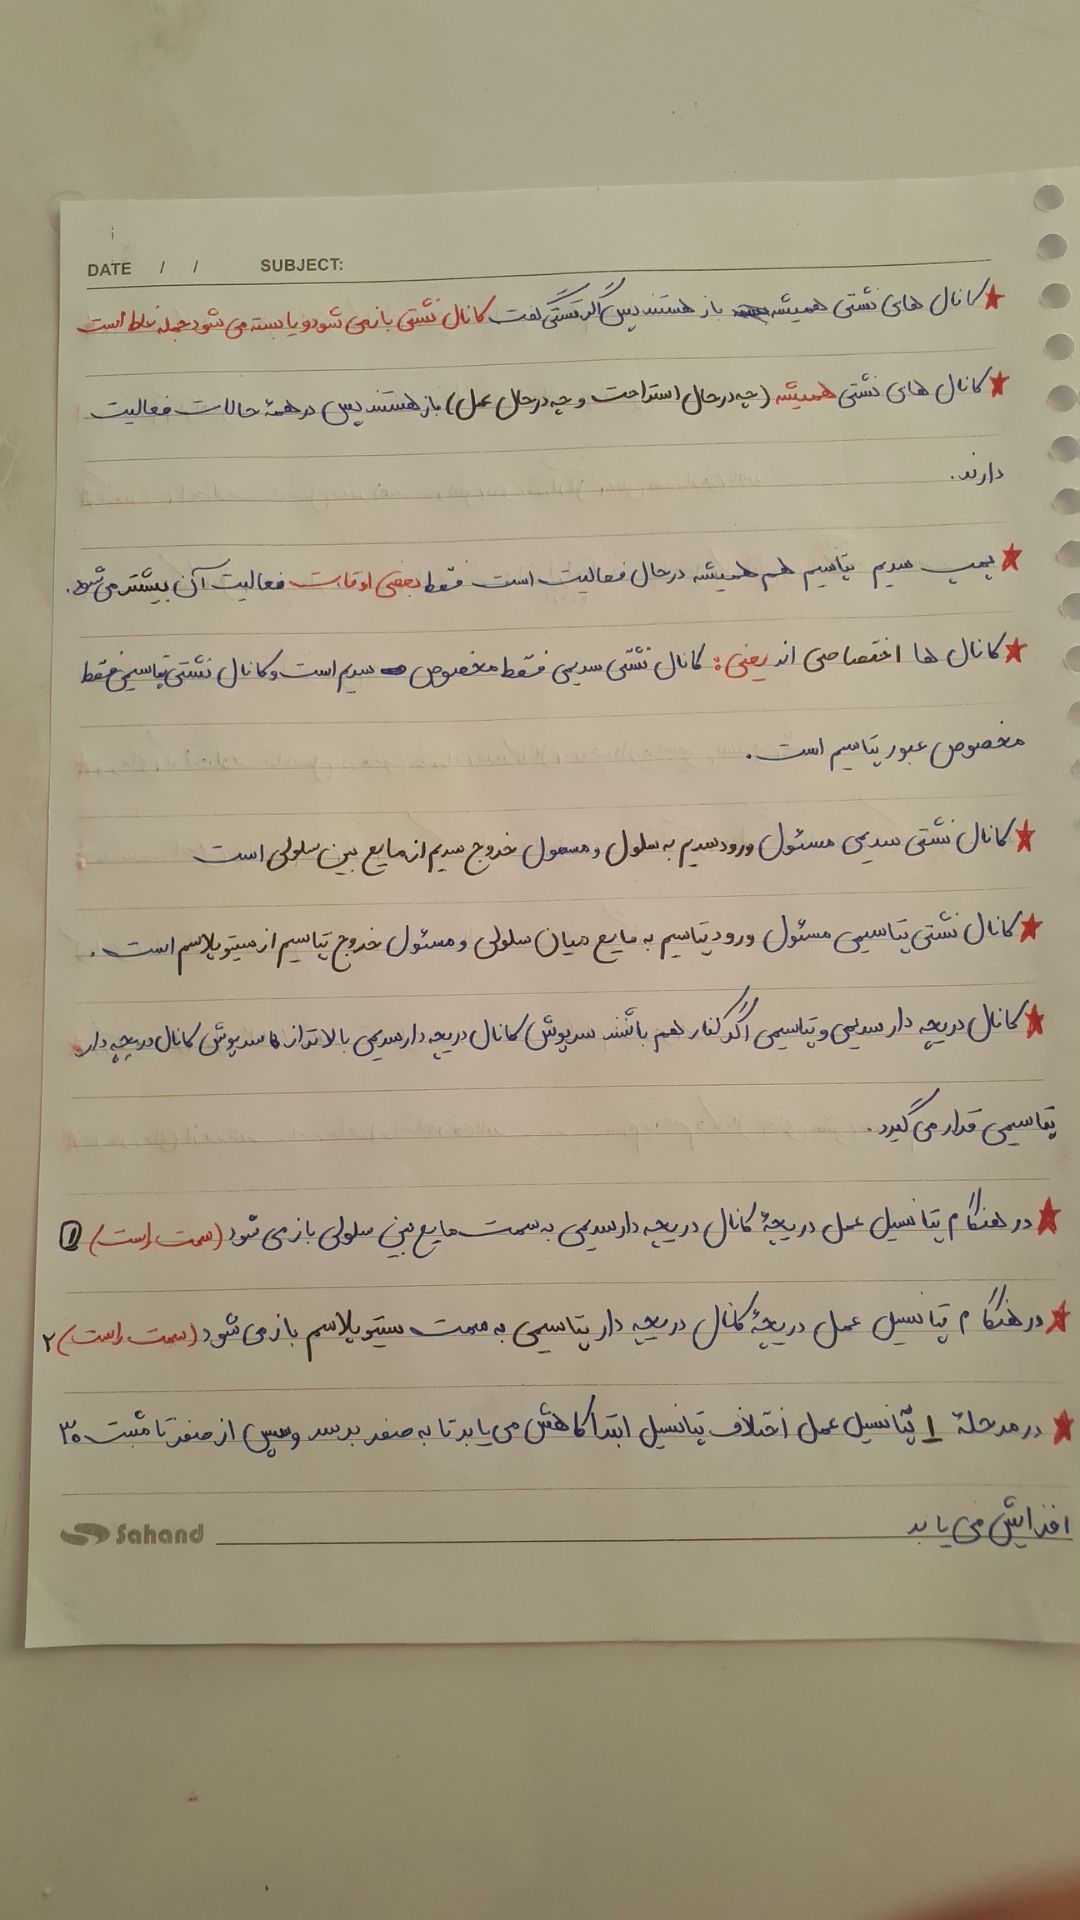 DATE / / SUBJECT:
★ کانال های نشتی همیشه باز هستند پس اگر تستی گفت کانال نشتی باز می شود و یا بسته می شود جمله غلط است
★ کانال های نشتی همیشه (چه در حال استراحت و چه در حال عمل) باز هستند پس در همۀ حالات فعالیت
دارند.
★ پمپ سدیم پتاسیم هم همیشه در حال فعالیت است فقط بعضی اوقات فعالیت آن بیشتر می شود.
★ کانال ها اختصاصی اند یعنی: کانال نشتی سدیمی فقط مخصوص سدیم است و کانال نشتی پتاسیمی فقط
مخصوص عبور پتاسیم است.
★ کانال نشتی سدیمی مسئول ورود سدیم به سلول و مسعول خروج سدیم از مایع بین سلولی است
★ کانال نشتی پتاسیمی مسئول ورود پتاسیم به مایع میان سلولی و مسئول خروج پتاسیم از سیتوپلاسم است.
★ کانال دریچه دار سدیمی و پتاسیمی اگر کنار هم باشند سرپوش کانال دریچه دار سدیمی بالاتر از سرپوش کانال دریچه دار
پتاسیمی قرار می گیرد.
★ در هنگام پتانسیل عمل دریچۀ کانال دریچه دار سدیمی به سمت مایع بین سلولی باز می شود (سمت راست) ①
★ در هنگام پتانسیل عمل دریچۀ کانال دریچه دار پتاسیمی به سمت سیتوپلاسم باز می شود (سمت راست) ۲
★ در مرحلۀ 1 پتانسیل عمل اختلاف پتانسیل ابتدا کاهش می یابد تا به صفر برسد و سپس از صفر تا مثبت ۳۰
افزایش می یابد
Sahand